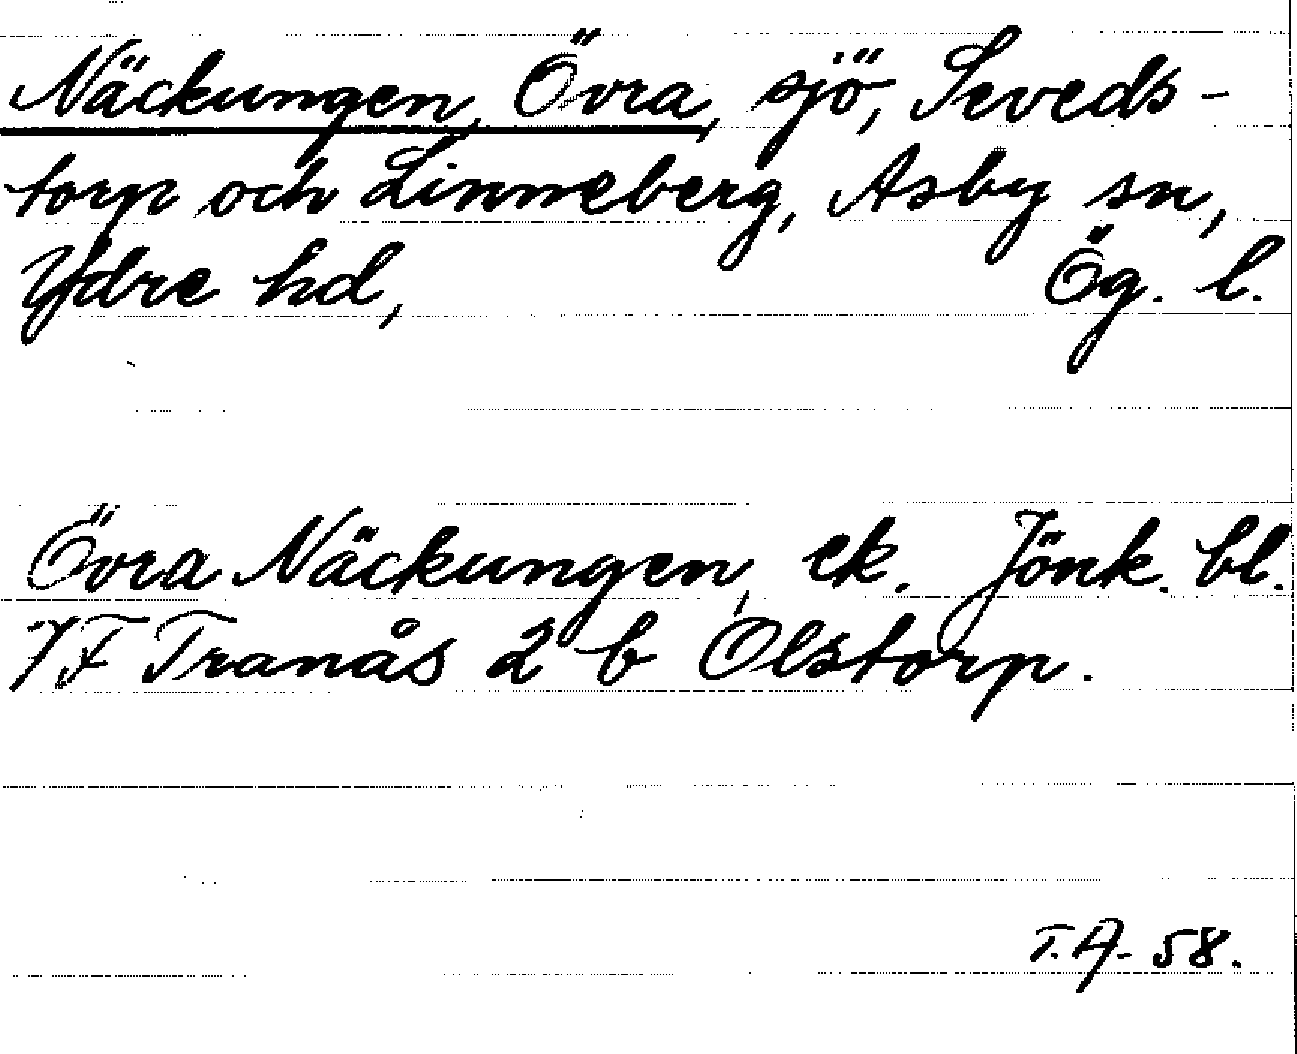 Näckungen, Övra, sjö, Seveds-
torp och Linneberg, Asby sn,
Ydre hd, Ög. l.
Övra Näckungen, ek. Jönk. bl.
7F Tranås 2 b Olstorp.
T.A. 58.